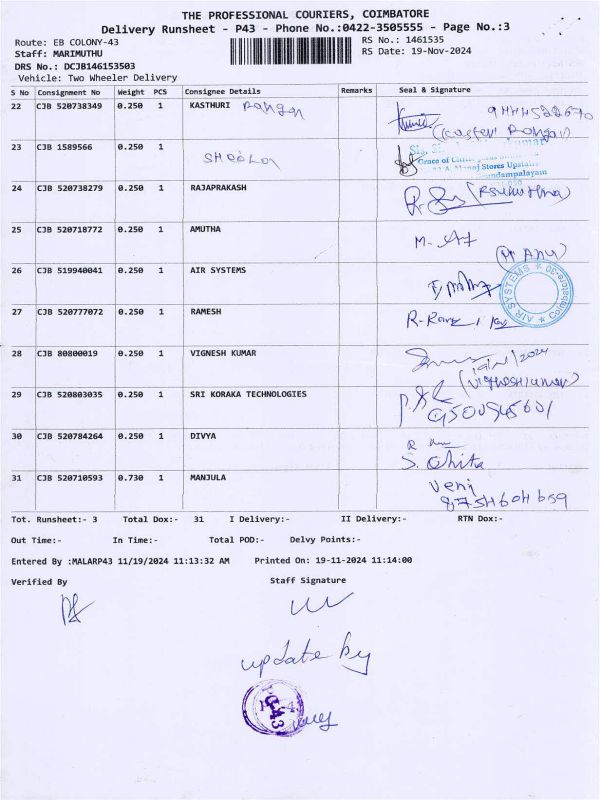 THE PROFESSIONAL COURIERS, COIMBATORE
Delivery Runsheet - P43 - Phone No.:0422-3505555 - Page No.:3
Route: EB COLONY-43 RS No.: 1461535
Staff: MARIMUTHU RS Date: 19-Nov-2024
DRS No.: DCJB146153503
Vehicle: Two Wheeler Delivery
S No Consignment No Weight PCS Consignee Details Remarks Seal & Signature
22 CJB 520738349 0.250 1 KASTHURI Rangan
23 CJB 1589566 0.250 1
Sheela
24 CJB 520738279 0.250 1 RAJAPRAKASH
25 CJB 520718772 0.250 1 AMUTHA
26 CJB 519940041 0.250 1 AIR SYSTEMS
AIR SYSTEMS
27 CJB 520777072 0.250 1 RAMESH
28 CJB 80800019 0.250 1 VIGNESH KUMAR
29 CJB 520803035 0.250 1 SRI KORAKA TECHNOLOGIES
30 CJB 520784264 0.250 1 DIVYA
31 CJB 520710593 0.730 1 MANJULA
Veni
Tot. Runsheet:- 3 Total Dox:- 31 I Delivery:- II Delivery:- RTN Dox:-
Out Time:- In Time:- Total POD:- Delvy Points:-
Entered By :MALARP43 11/19/2024 11:13:32 AM Printed On: 19-11-2024 11:14:00
Verified By Staff Signature
update by